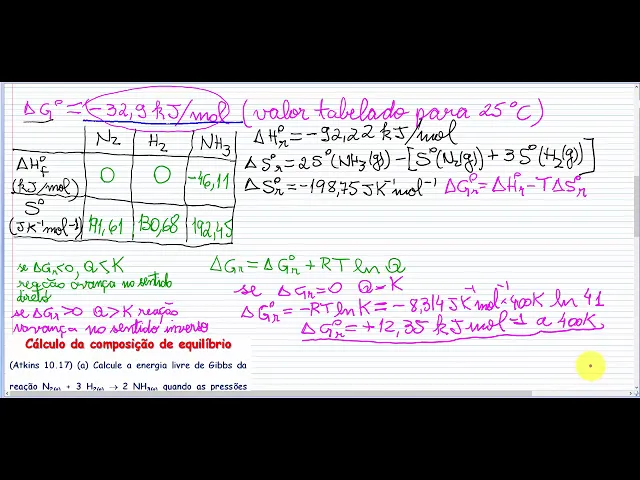 ΔG° = -32,9 kJ/mol (valor tabelado para 25°C)
N₂ H₂ NH₃
ΔH°f (kJ/mol) 0 0 -46,11
S° (JK⁻¹mol⁻¹) 191,61 130,68 192,45
ΔH°r = -92,22 kJ/mol
ΔS°r = 2S°(NH₃(g)) - [S°(N₂(g)) + 3S°(H₂(g))]
ΔS°r = -198,75 JK⁻¹mol⁻¹ ΔG°r = ΔH°r - TΔS°r
se ΔGr<0, Q<K
reação avança no sentido
direto
se ΔGr>0 Q>K reação
no sentido inverso
ΔGr = ΔG°r + RT ln Q
se ΔGr=0 Q=K
ΔG°r = -RT ln K = -8,314 JK⁻¹mol⁻¹×400K ln 41
ΔG°r = +12,35 kJ mol⁻¹ a 400K
Cálculo da composição de equilíbrio
(Atkins 10.17) (a) Calcule a energia livre de Gibbs da
reação N₂(g) + 3 H₂(g) → 2 NH₃(g) quando as pressões